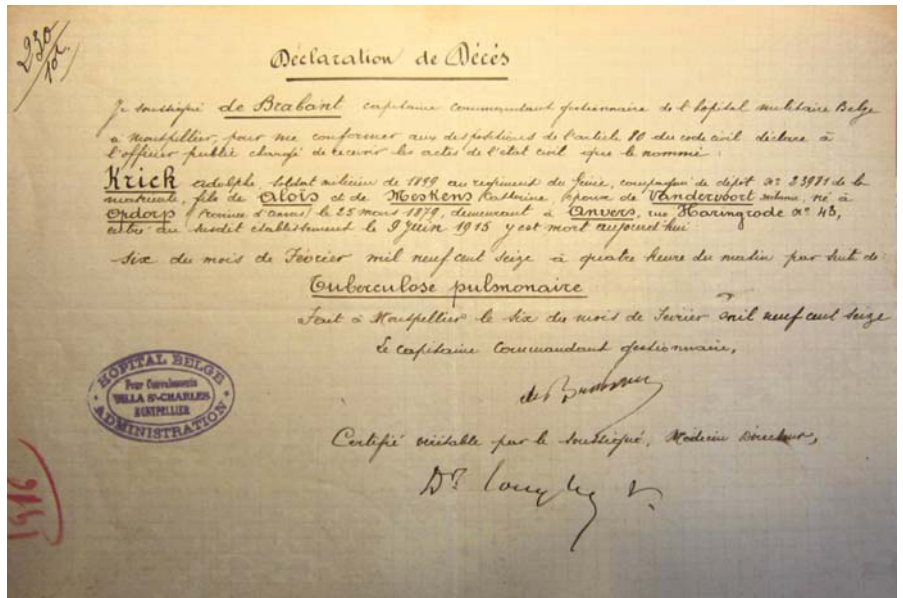 230
Déclaration de Décès
Je soussigné de Brabant capitaine commandant gestionnaire de l'hopital militaire Belge
à Montpellier, pour me conformer aux dispositions de l'article 80 du code civil déclare à
l'officier public chargé de recevoir les actes de l'état civil que le nommé :
Krick adolphe, soldat milicien de 1899 au regiment du Génie, compagnie de dépôt n° 23981 de la
matricule, fils de Aloïs et de Meskens Katherine, époux de Vandervoort né à
Opdorp (Province d'anvers) le 25 mars 1879, demeurant à Anvers, rue Haringrode n° 43,
entré au susdit établissement le 9 Juin 1915 y est mort aujourd'hui
six du mois de Février mil neuf cent seize à quatre heure du matin par suite de :
Tuberculose pulmonaire
Fait à Montpellier le six du mois de Fevrier mil neuf cent seize
Le capitaine Commandant gestionnaire,
HOPITAL BELGE
Pour Convalescents
VILLA St-CHARLES
MONTPELLIER
ADMINISTRATION
Certifié véritable par le soussigné, Médecin Directeur,
Dr
1916